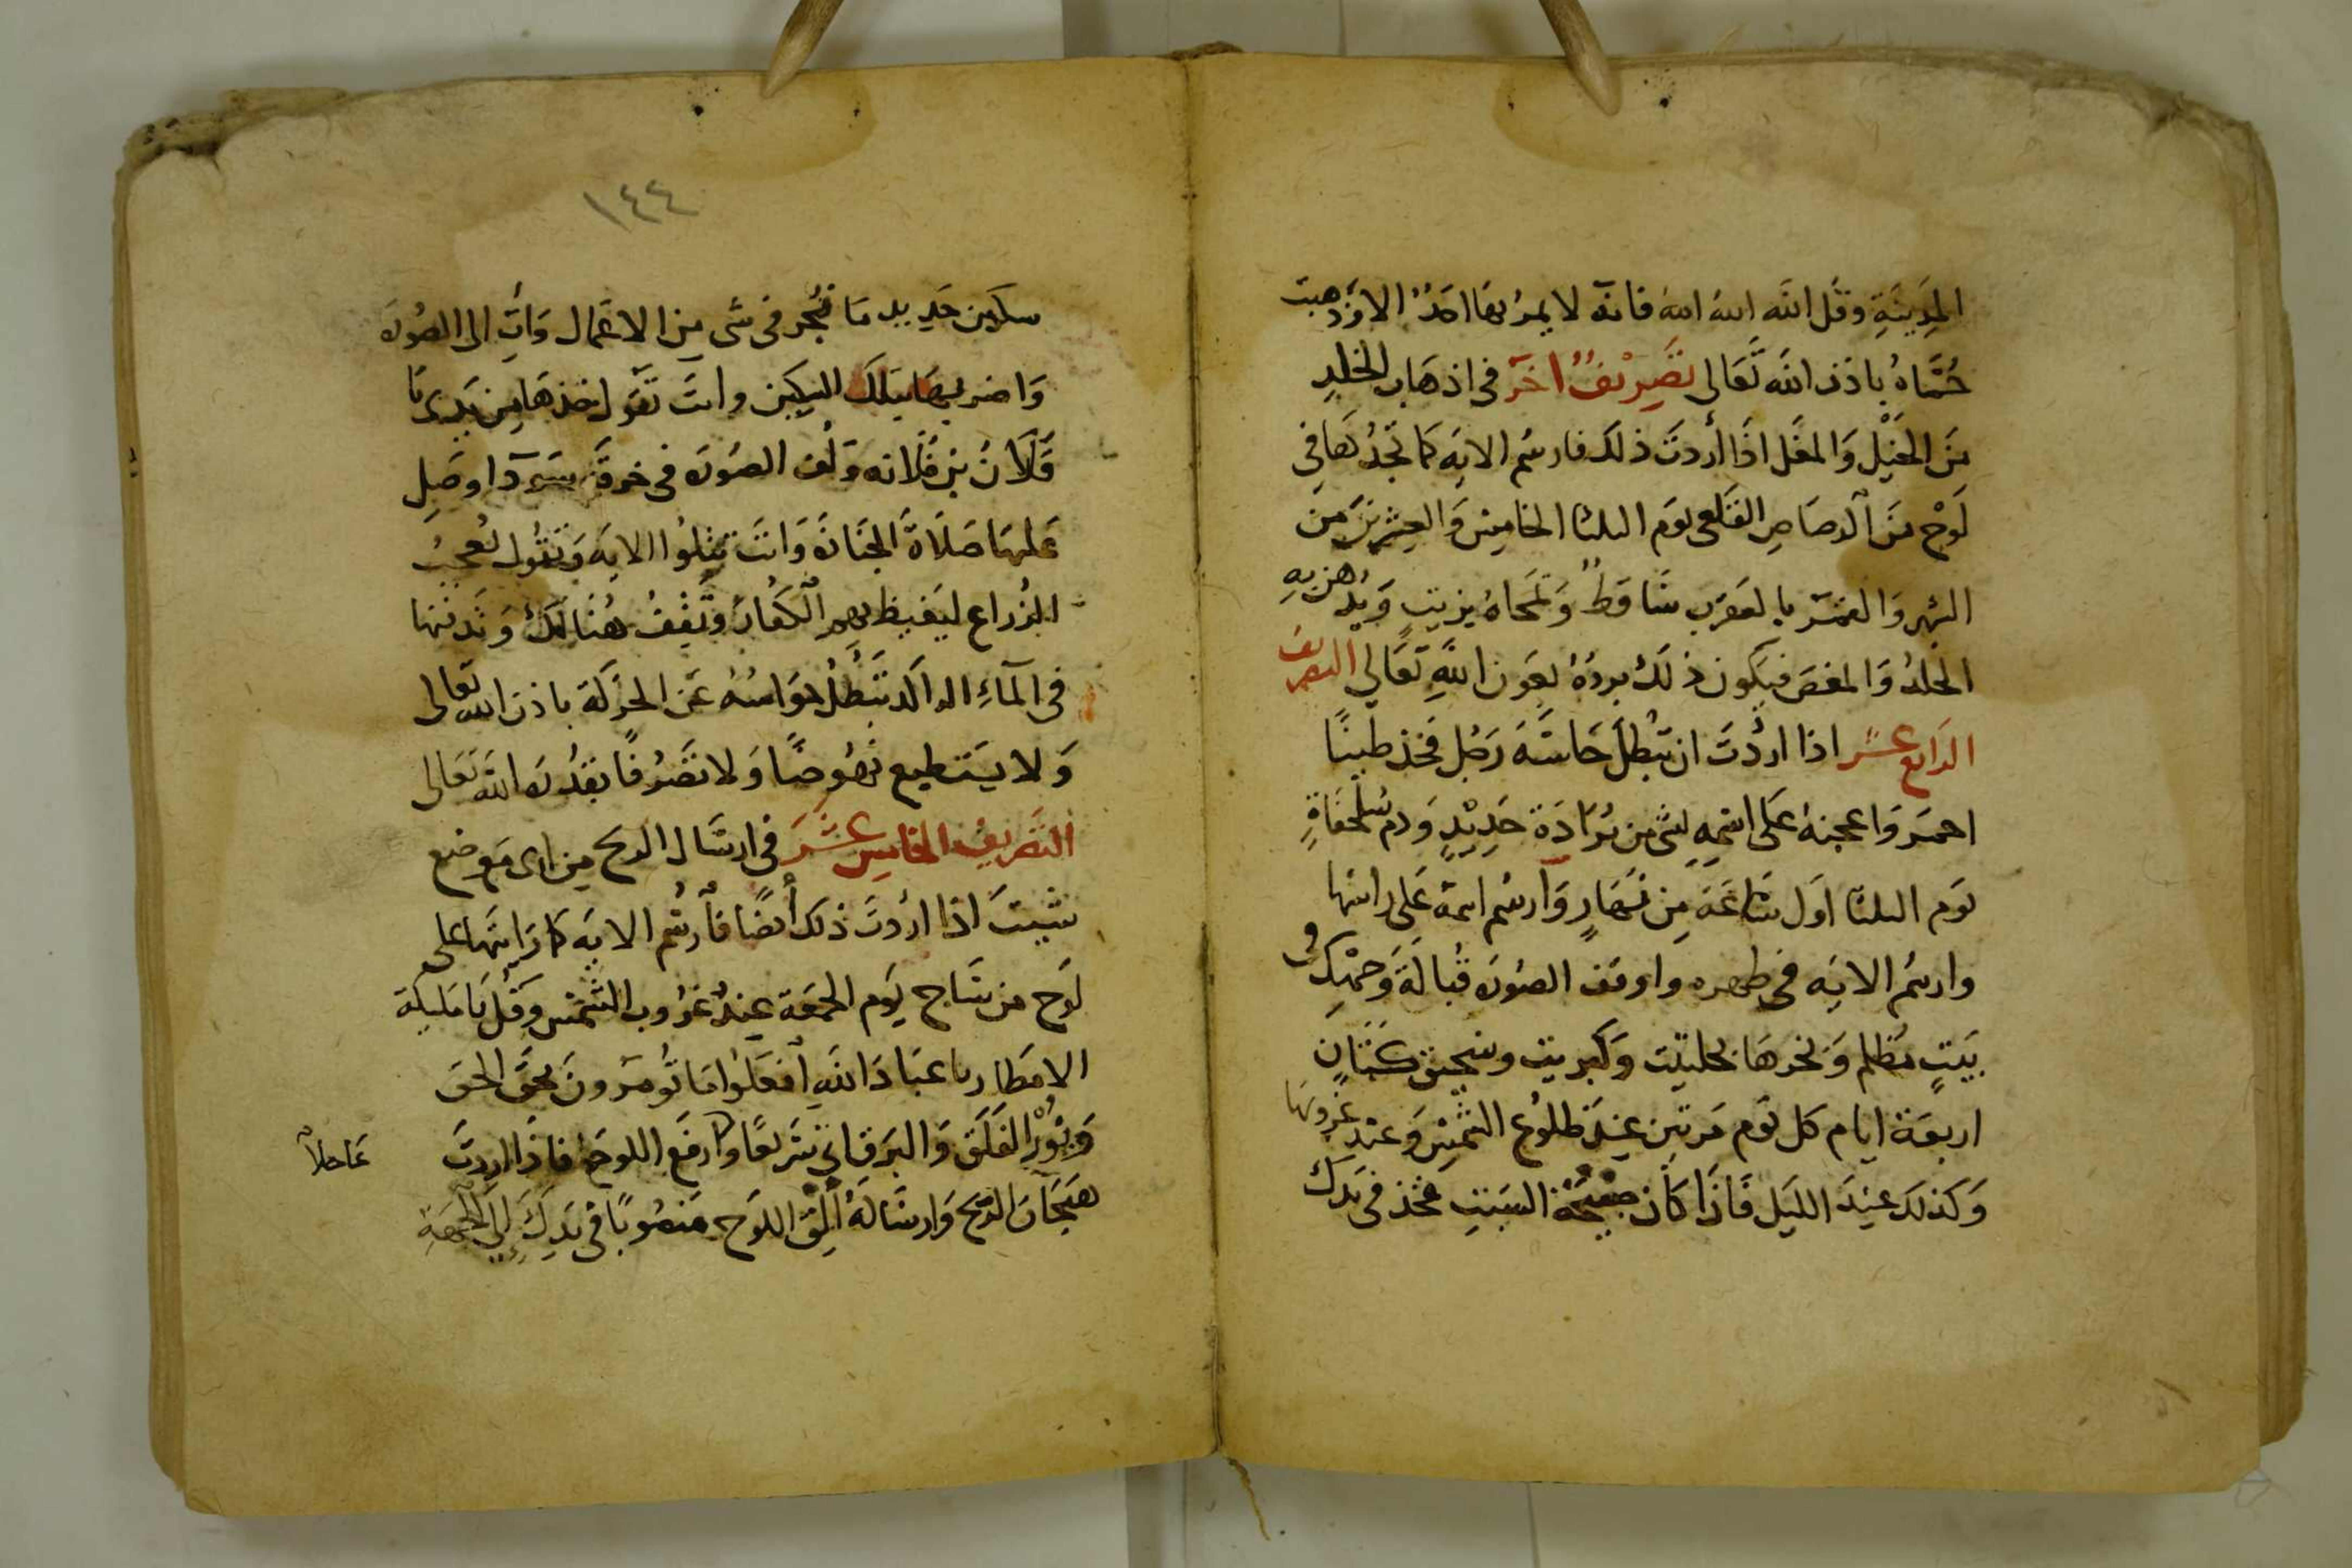 المدينة وقل الله الله الله فانه لا يمر بها احد الا وذهبت
حُمَّاهُ باذن الله تَعَالى تَصْرِيْفٌ اخر في اذهاب الخلد
مِنَ الخَيْل وَالمغَل اذَا أردتَ ذلك فارسُم الايَه كما تجدُهَا فى
لَوْح مِنَ الرصَاصِ القَلعى يوَم الثلثا الخامِس وَالعِشرينَ من
الشهر وَالقمَر بالعقرَب سَاقطٌ وَتمحَاهُ بزيتٍ وَيُدْهن بِهِ
الخلدُ وَالمغصَ فيَكون ذلكَ بردَهُ بعَون اللَّهِ تَعَالي التصريف
الرَابع عشر اذا اردْتَ ان تبْطلَ حَاسَّهَ رَجُل فخذ طينًا
احمَر وَاعجنه عَلى اسْمِهِ بشى من بُرَادَة حَدِيْدٍ وَدم سُلحْفَاةٍ
يوَم الثلثا اوَل سَاعَةَ مِن نَهَارٍ وَارسُم اسمهُ عَلى راسها
وارسُم الايَه فى ظهره واوقف الصوُره قُبالَةَ وَجهْكِ فى
بَيتٍ مُظلم وَبخرهَا بحلتيت وَكبريت وسحيق كَتَّانٍ
اربعَة ايام كل يَوم مَرتين عِندَ طلوُع الشمْسِ وَعندِ غروبهَا
وَكذلَك عِندَ الليَل فَاذَا كَان صَبيْحَة السَبتِ فخذ فى يَدك
١٤٤
سكين حَدِيد مَا تجُر فى شى مِن الاعمال وَاتِ الى الصُورَه
وَاضربهَا بتلكَ السِكين وانتَ تقوَل خذهَا مِن يَدى يَا
فَلَانُ بن فلَانه وَلُف الصوُرَه فى خرقَة سَودَا وصَلِ
عَليهَا صَلَاةَ الجنَازَة وَانتَ تتلُوا الايَه وَتقُول يُعجبُ
الزُراع ليَغيظ بهِمِ الكفارَ وتَّقِفُ هُنَالِكَ وَتَدفنها
فى المآءِ الراكد تَبُطلُ حوَاسُهُ عَن الحَركَة باذن الله تعَالى
وَلا يسَتطيع نُهوُضًا وَلا تصَرُفًا بقدُرَة الله تعَالى
التَصْريِفُ الخامِس عَشَرَ فى ارسَال الريح مِن اى موَضع
شيتَ اذا اردتَ ذلك أيضًا فأرسُم الايَه كما رَايتَها على
لَوح من سَاج يَوم الجمعَة عِندَ غرُوب الشمْس وَقُل يَا مَليكَة
الامطَار يا عبَادَ اللهِ افعَلوا مَا تُومَرونَ بحقَ الحقَ
وَبِنُوْر الفَلَق وَالبَرقاتي سَريعًا وَارفَع اللوحَ فاذَا اردتَ
هَيَجَانَ الريح وَارسَالَهُ ألِق اللوَح مَنصوُبًا فى يَدِكَ إلِى الجهَةِ
عَاجلاً